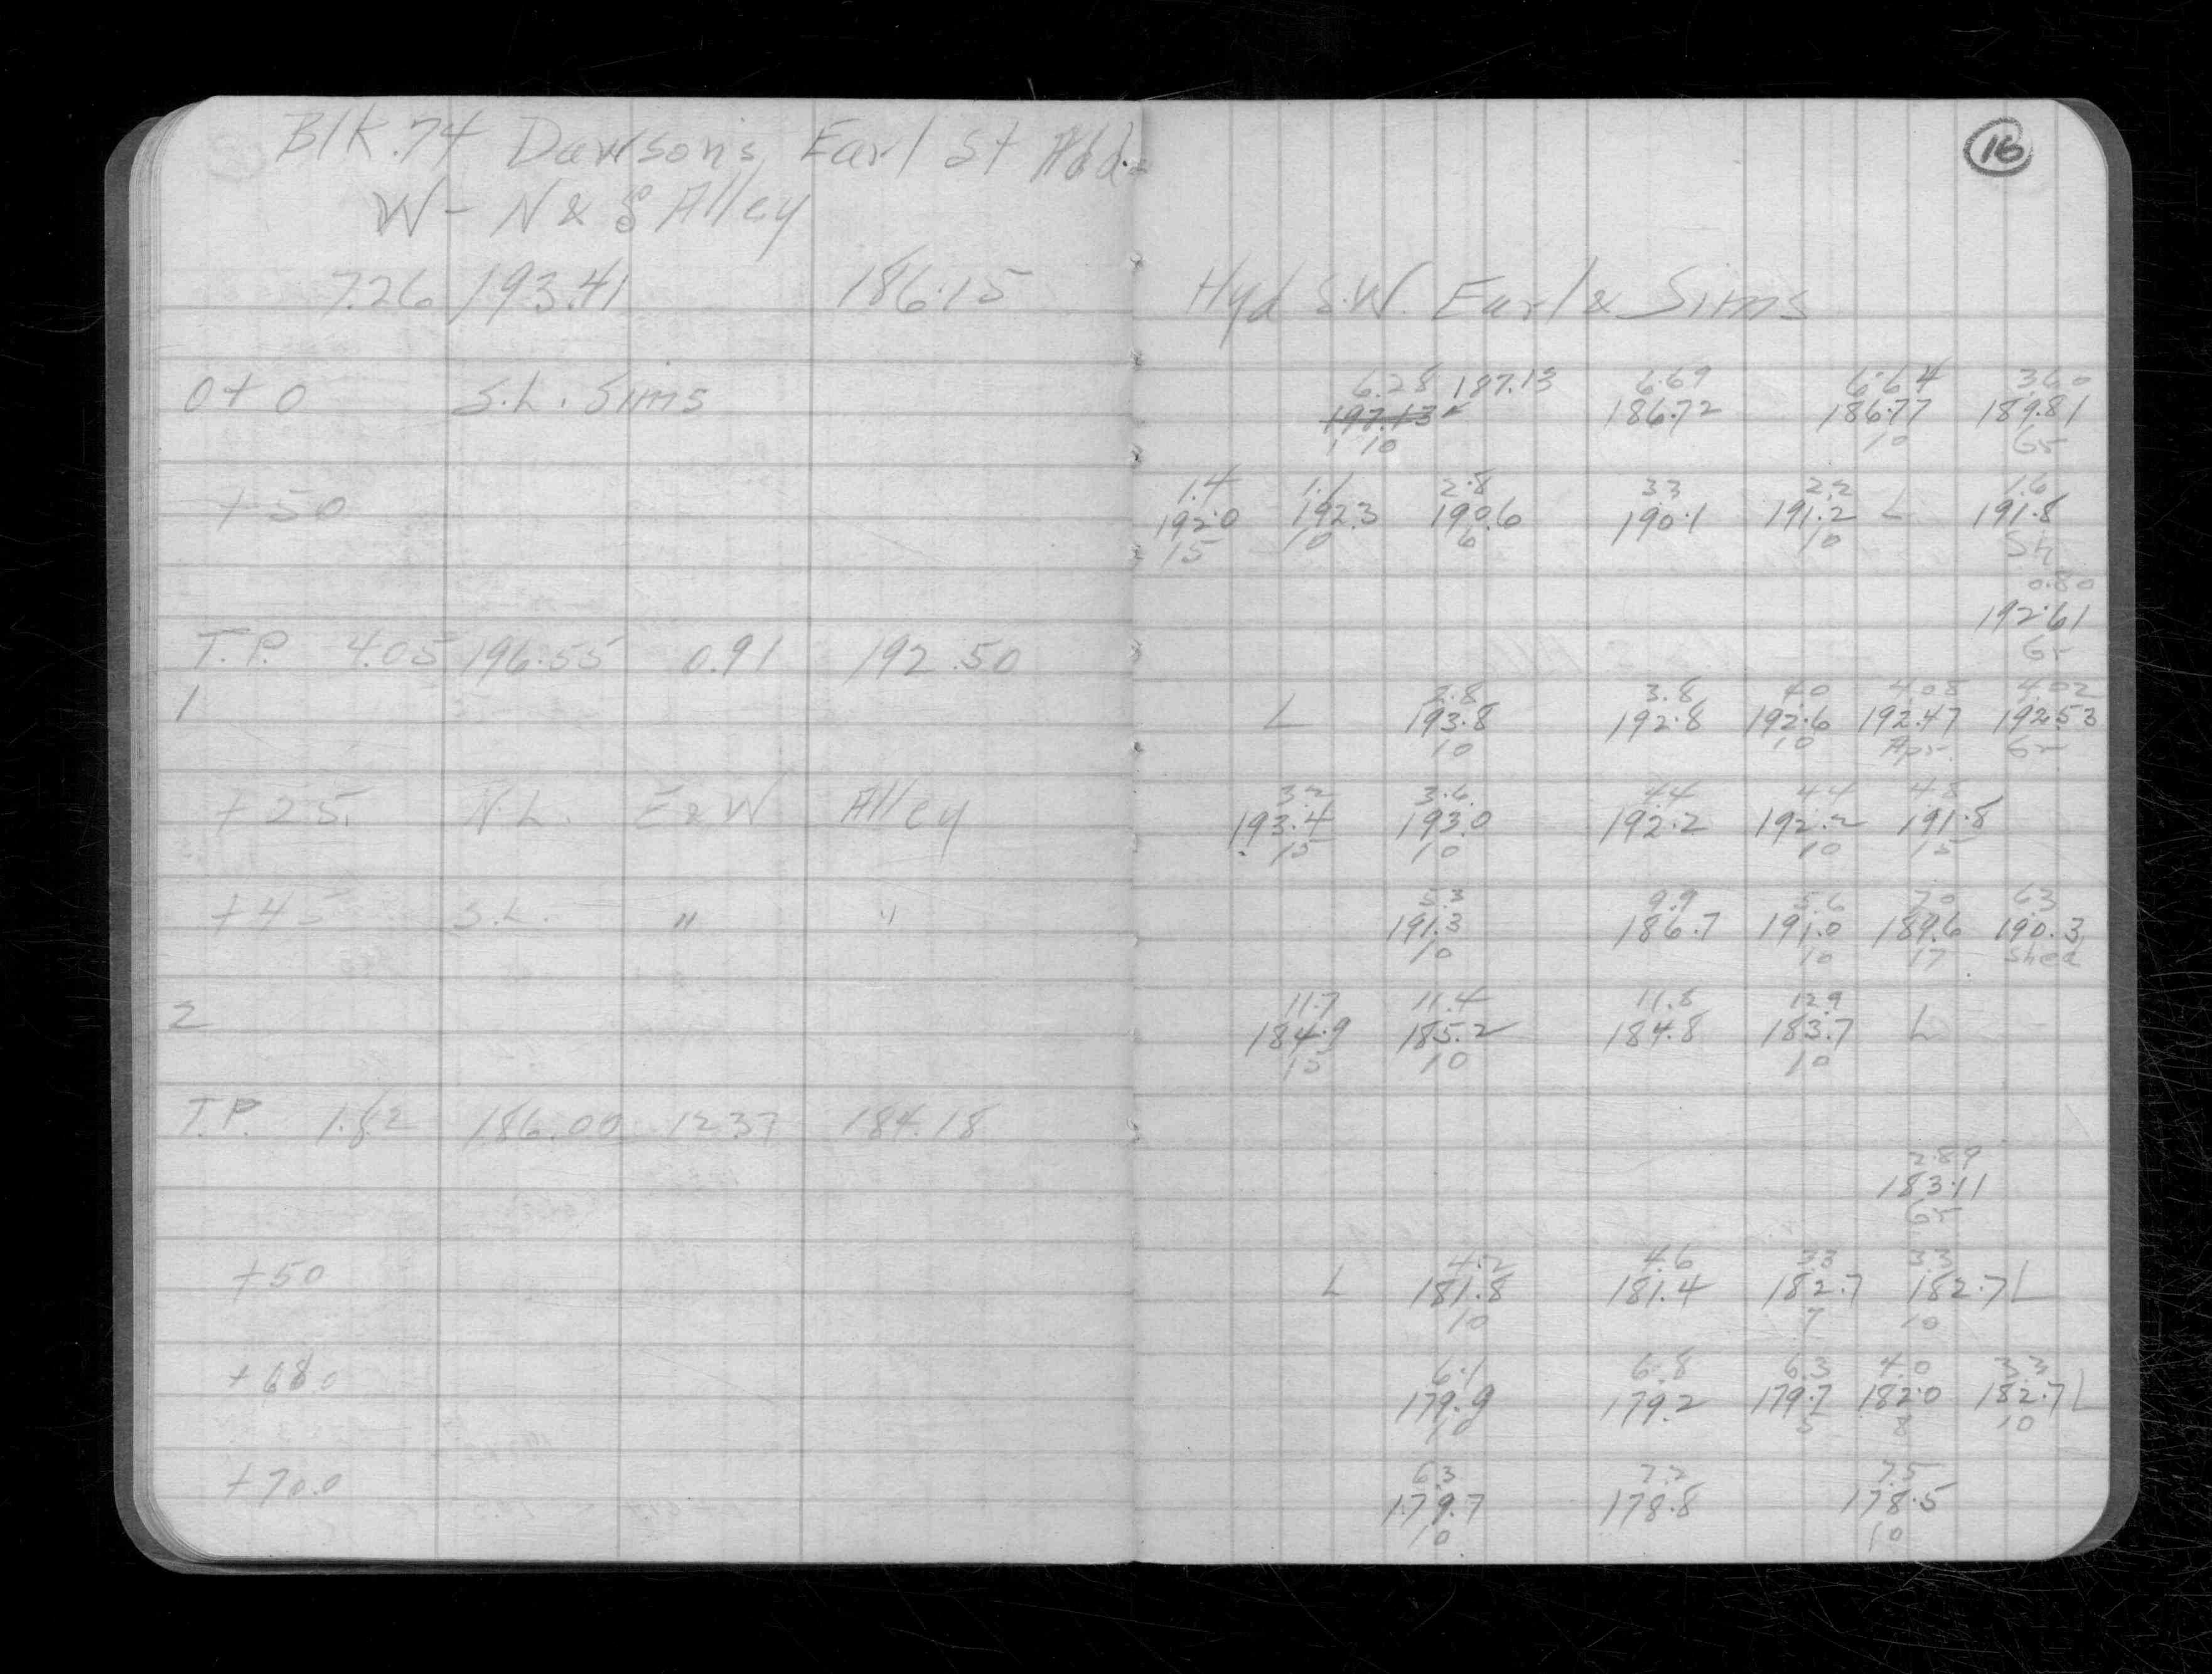 16
Blk. 74 Dawson's Earl St Add.
W - N & S Alley
7.26 193.41 186.15 Hyd S.W. Earl & Sims
6.28 187.13 6.69 6.64 3.60
0+0 S.L. Sims 197.13 186.72 186.77 189.81
10 10 Gr
1.4 1.1 2.8 3.3 2.2 1.6
+50 192.0 192.3 190.6 190.1 191.2 L 191.8
15 10 6 10 Sh
0.80
192.61
T.P. 4.05 196.55 0.91 192.50 Gr
2.8 3.8 4.0 4.08 4.02
1 L 193.8 192.8 192.6 192.47 192.53
10 10 Apr. Gr
3.2 3.6 4.4 4.4 4.8
+25. N.L. E & W Alley 193.4 193.0 192.2 192.2 191.8
15 10 10 15
5.3 9.9 5.6 7.0 6.3
+45 S.L. " " 191.3 186.7 191.0 189.6 190.3
10 10 17 Shed
11.7 11.4 11.8 12.9
2 184.9 185.2 184.8 183.7 L
15 10 10
T.P. 1.82 186.00 12.37 184.18
2.89
183.11
Gr
4.2 4.6 3.3 3.3
+50 L 181.8 181.4 182.7 182.7 L
10 7 10
6.1 6.8 6.3 4.0 3.3
+68.0 179.9 179.2 179.7 182.0 182.7 L
10 5 8 10
6.3 7.2 7.5
+70.0 179.7 178.8 178.5
10 10